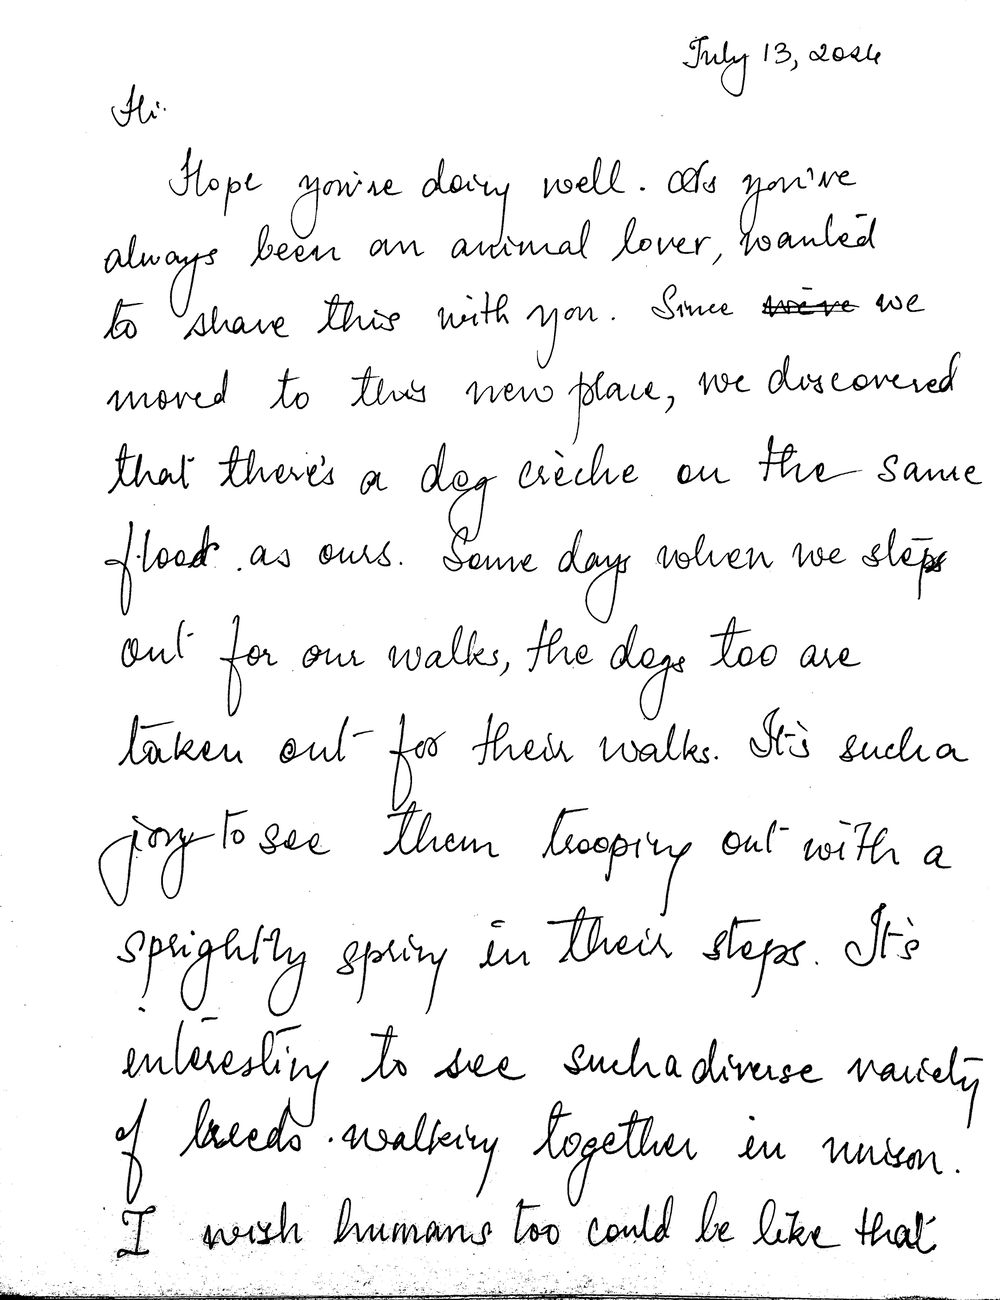 July 13, 2024
Hi.
Hope you're doing well. As you've
always been an animal lover, wanted
to share this with you. Since we've we
moved to this new place, we discovered
that there's a dog crèche on the same
floor as ours. Some days when we step
out for our walks, the dogs too are
taken out for their walks. It's such a
joy to see them trooping out with a
sprightly spring in their steps. It's
interesting to see such a diverse variety
of breeds walking together in unison.
I wish humans too could be like that.